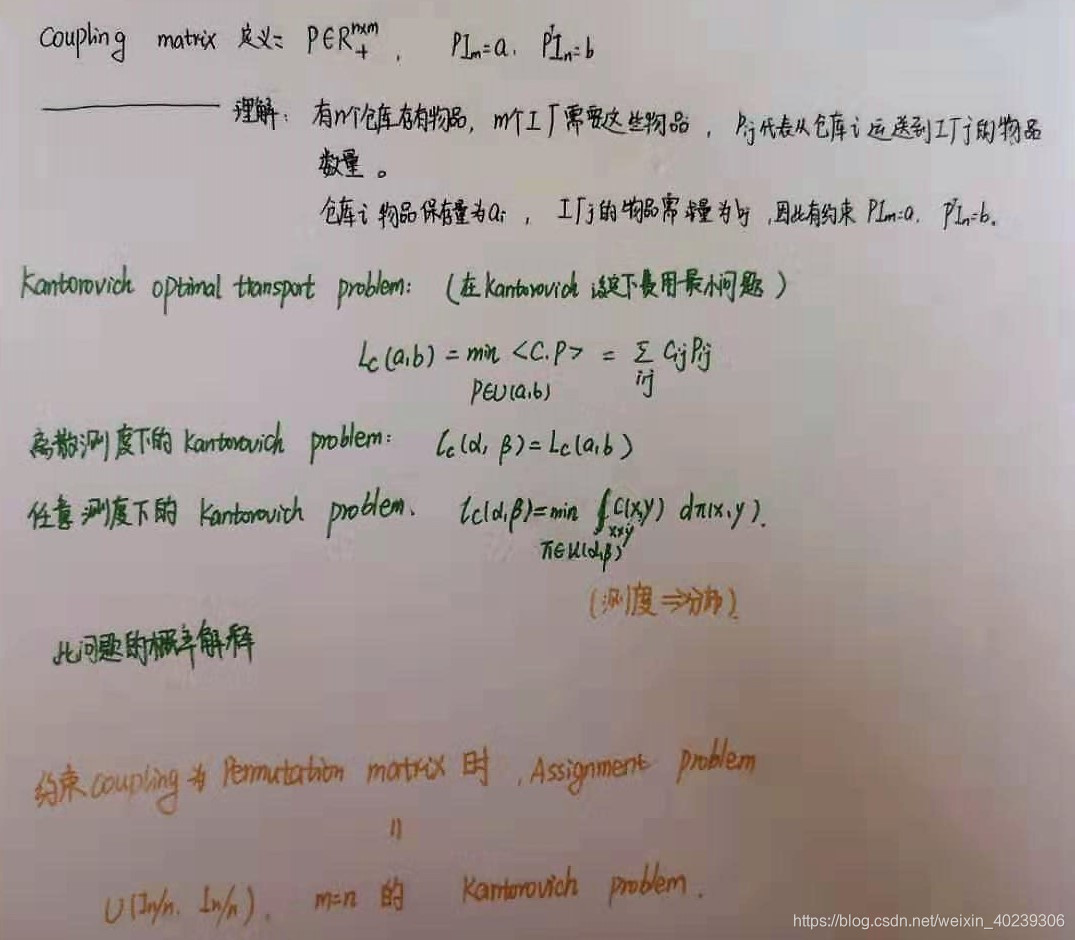 Coupling matrix 定义: P∈R₊ⁿˣᵐ, P𝟙m=a. Pᵀ𝟙n=b
理解: 有n个仓库存有物品, m个工厂需要这些物品, Pij代表从仓库i运送到工厂j的物品
数量。
仓库i物品保存量为ai, 工厂j的物品需求量为bj, 因此有约束 P𝟙m=a. Pᵀ𝟙n=b.
Kantorovich optimal transport problem: (在Kantorovich 设定下费用最小问题)
Lc(a,b) = min <C.P> = Σ CijPij
P∈U(a,b) ij
离散测度下的 Kantorovich problem: Lc(α, β)=Lc(a,b)
任意测度下的 Kantorovich problem. Lc(α,β)=min ∫ C(x,y) dπ(x,y).
π∈U(α,β) x×y
(测度⇒分布).
此问题的概率解释
约束coupling为 Permutation matrix 时, Assignment problem
=
U(𝟙n/n, 𝟙n/n), m=n 的 Kantorovich problem.
https://blog.csdn.net/weixin_40239306